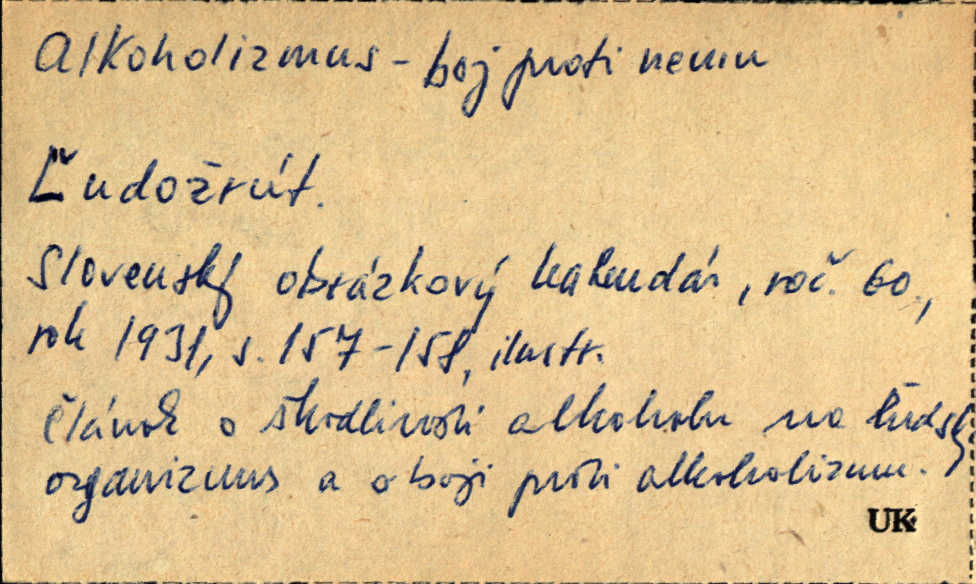 Alkoholizmus - boj proti nemu
Ľudožrút.
Slovenský obrázkový kalendár, roč. 60.,
rok 1931, s. 157-158, ilustr.
Článok o škodlivosti alkoholu na ľudský
organizmus a o boji proti alkoholizmu.
UK